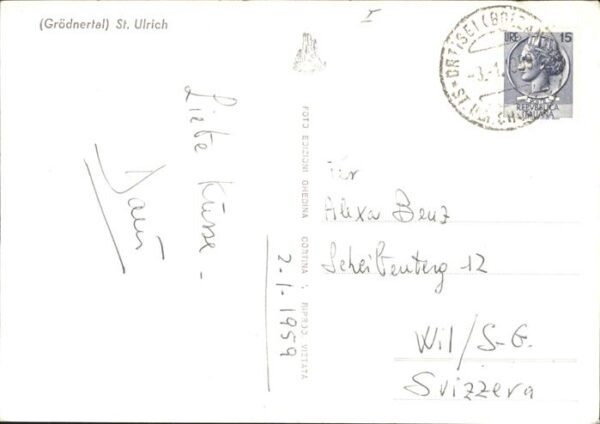 (Grödnertal) St. Ulrich
Liebe Küsse -
FOTO EDIZIONI GHEDINA CORTINA - RIPROD. VIETATA
2-1-1959
LIRE 15
REPVBBLICA
ITALIANA
ORTISEI (BOLZ
-3.-1.
Alexa Benz
Scheibenberg 12
Wil/S-G.
Svizzera